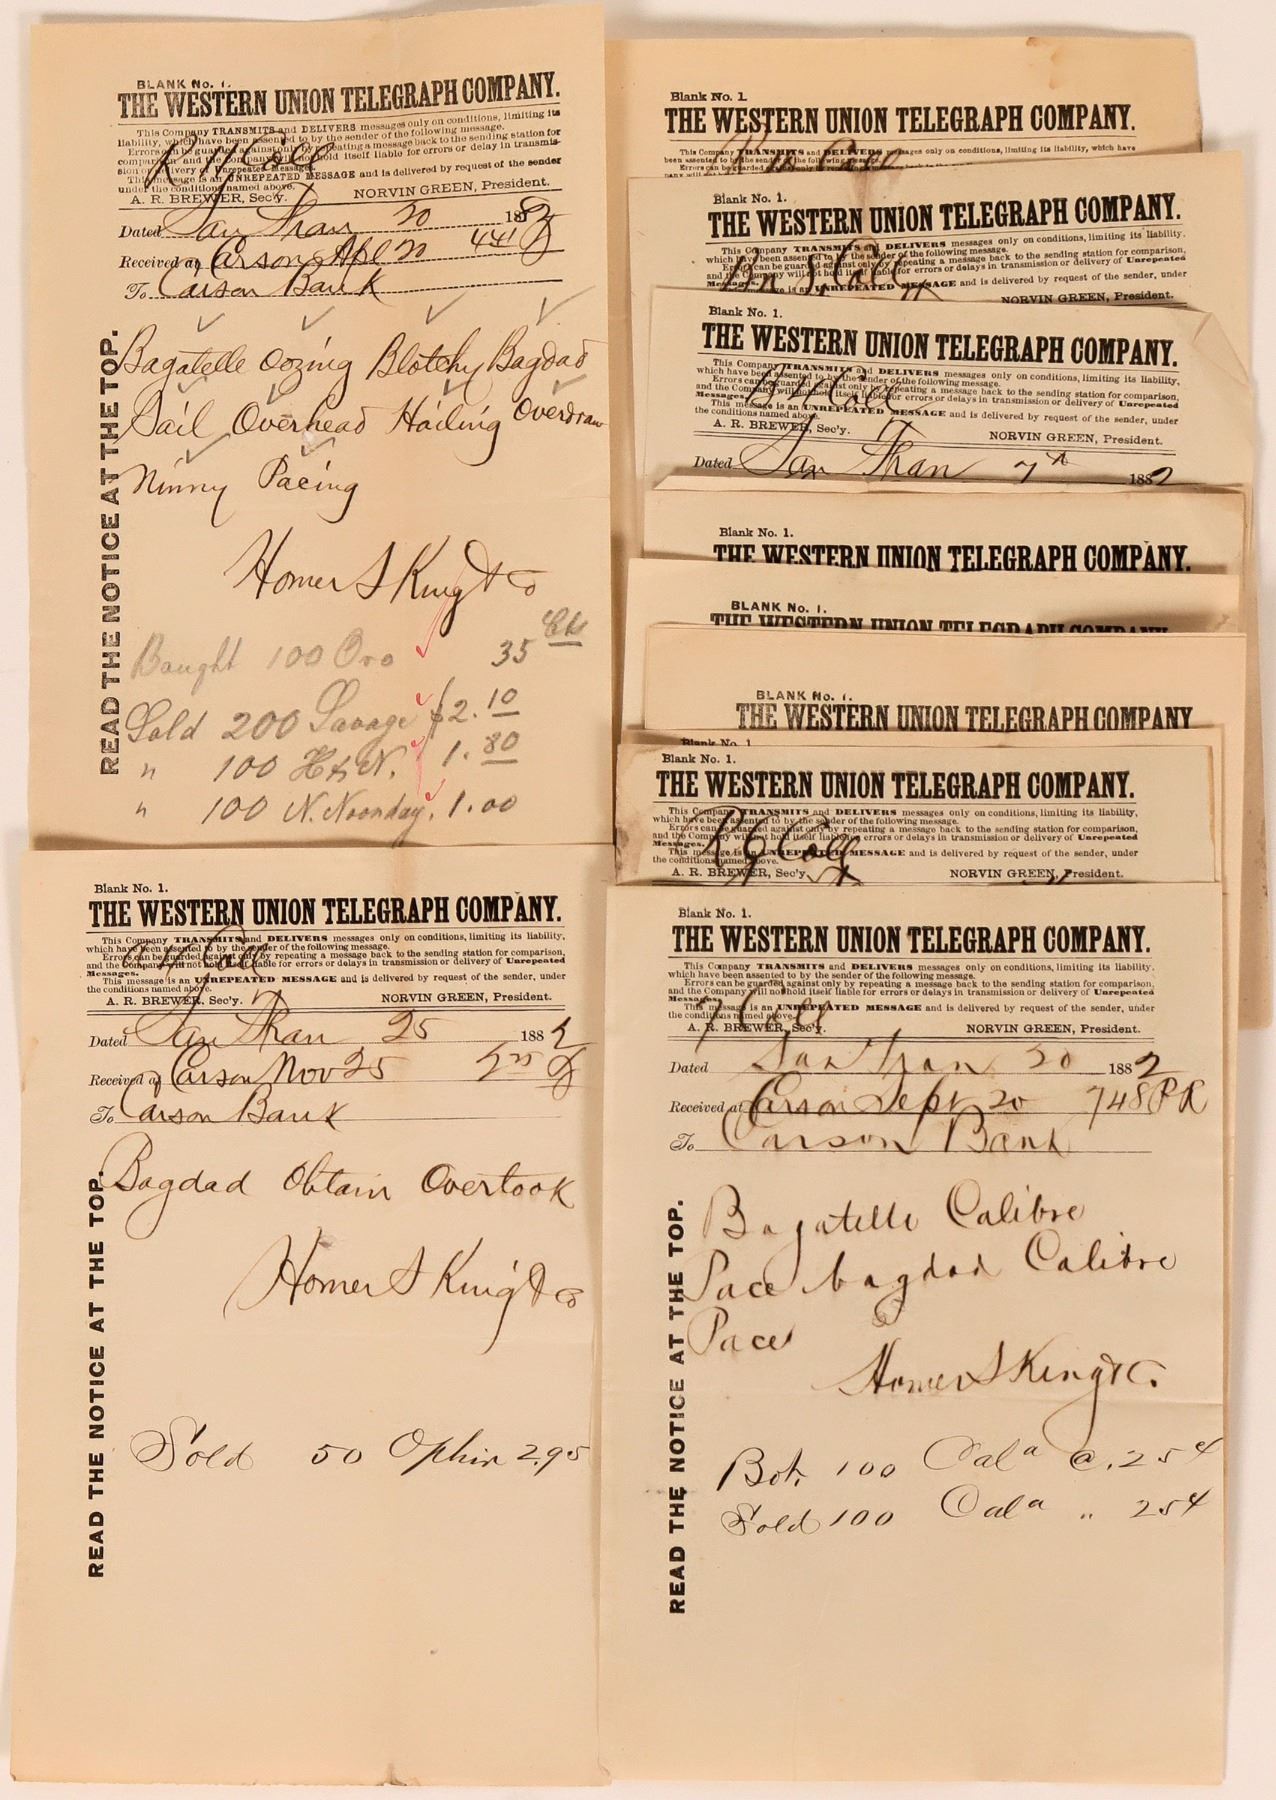 BLANK No. 1.
THE WESTERN UNION TELEGRAPH COMPANY.
This Company TRANSMITS and DELIVERS messages only on conditions, limiting its
liability, which have been assented to by the sender of the following message.
Errors can be guarded against only by repeating a message back to the sending station for
comparison, and the Company will not hold itself liable for errors or delay in transmis-
sion or delivery of Unrepeated Messages.
This message is an UNREPEATED MESSAGE and is delivered by request of the sender
under the conditions named above.
A. R. BREWER, Sec'y. NORVIN GREEN, President.
Dated San Fran 20 1882
Received at Carson Apl 20 441
To Carson Bank
Bagatelle Oozing Blotchy Bagdad
Sail Overhead Hailing Overdraw
Ninny Pacing
Homer S King & Co
Bought 100 Oro 35 cts
Sold 200 Savage $2.10
" 100 H & N. 1.80
" 100 N. Noonday. 1.00
READ THE NOTICE AT THE TOP.
Blank No. 1.
THE WESTERN UNION TELEGRAPH COMPANY.
This Company TRANSMITS and DELIVERS messages only on conditions, limiting its liability,
which have been assented to by the sender of the following message.
Errors can be guarded against only by repeating a message back to the sending station for comparison,
and the Company will not hold itself liable for errors or delays in transmission or delivery of Unrepeated
Messages.
This message is an UNREPEATED MESSAGE and is delivered by request of the sender, under
the conditions named above.
A. R. BREWER, Sec'y. NORVIN GREEN, President.
Dated San Fran 25 1882
Received at Carson Nov 25
To Carson Bank
Bagdad Obtain Overtook
Homer S King & Co
Sold 50 Ophir 2.95
READ THE NOTICE AT THE TOP.
Blank No. 1
THE WESTERN UNION TELEGRAPH COMPANY.
This Company TRANSMITS and DELIVERS messages only on conditions, limiting its liability, which have
been assented to by the sender of the following message.
Errors can be guarded
Blank No. 1.
THE WESTERN UNION TELEGRAPH COMPANY.
This Company TRANSMITS and DELIVERS messages only on conditions, limiting its liability,
which have been assented to by the sender of the following message.
Errors can be guarded against only by repeating a message back to the sending station for comparison,
and the Company will not hold itself liable for errors or delays in transmission or delivery of Unrepeated
Messages.
This message is an UNREPEATED MESSAGE and is delivered by request of the sender, under
NORVIN GREEN, President.
Blank No. 1.
THE WESTERN UNION TELEGRAPH COMPANY.
This Company TRANSMITS and DELIVERS messages only on conditions, limiting its liability,
which have been assented to by the sender of the following message.
Errors can be guarded against only by repeating a message back to the sending station for comparison,
and the Company will not hold itself liable for errors or delays in transmission or delivery of Unrepeated
Messages.
This message is an UNREPEATED MESSAGE and is delivered by request of the sender, under
the conditions named above.
A. R. BREWER, Sec'y. NORVIN GREEN, President.
Dated San Fran 7 1882
Blank No. 1.
THE WESTERN UNION TELEGRAPH COMPANY.
BLANK No. 1.
THE WESTERN UNION TELEGRAPH COMPANY.
BLANK No. 1.
THE WESTERN UNION TELEGRAPH COMPANY
Blank No. 1
Blank No. 1.
THE WESTERN UNION TELEGRAPH COMPANY.
This Company TRANSMITS and DELIVERS messages only on conditions, limiting its liability,
which have been assented to by the sender of the following message.
Errors can be guarded against only by repeating a message back to the sending station for comparison,
and the Company will not hold itself liable for errors or delays in transmission or delivery of Unrepeated
Messages.
This message is an UNREPEATED MESSAGE and is delivered by request of the sender, under
the conditions named above.
A. R. BREWER, Sec'y NORVIN GREEN, President.
Blank No. 1.
THE WESTERN UNION TELEGRAPH COMPANY.
This Company TRANSMITS and DELIVERS messages only on conditions, limiting its liability,
which have been assented to by the sender of the following message.
Errors can be guarded against only by repeating a message back to the sending station for comparison,
and the Company will not hold itself liable for errors or delays in transmission or delivery of Unrepeated
Messages.
This message is an UNREPEATED MESSAGE and is delivered by request of the sender, under
the conditions named above.
7 Coll
A. R. BREWER, Sec'y. NORVIN GREEN, President.
Dated San Fran 20 1882
Received at Carson Sept 20 748 PR
To Carson Bank
Bagatelle Calibre
Pace bagdad Calibre
Pace
Homer S King & Co.
Bot. 100 Cala @ .25
Sold 100 Cala " 25
READ THE NOTICE AT THE TOP.